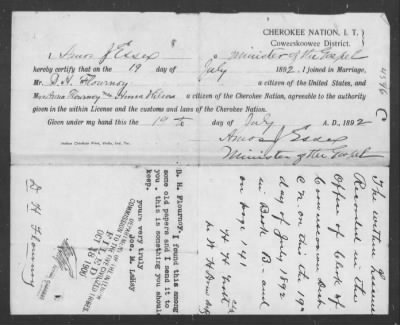 CHEROKEE NATION, I. T.
Cooweeskoowee District.
I, Amos J Essex a Minister of the Gospel
hereby certify that on the 19 day of July 1892, I joined in Marriage,
Mr. D. H. Flournoy a citizen of the United States, and
Mrs Anna Flournoy nee Anna Nelson a citizen of the Cherokee Nation, agreeable to the authority
given in the within License and the customs and laws of the Cherokee Nation.
Given under my hand this the 19th day of July A. D., 1892
Amos J Essex
Minister of the Gospel
Indian Chieftain Print, Vinita, Ind. Ter.
4596
C
The within License
Recorded in the
Office of Clerk of
Cooweescoowee Dist
C. N. on this the 19th
day of July 1892
in Book B - and
on page 41
D. H. Flournoy. I found this among
some old papers and I send it to
you. this is something you should
keep.
yours very truly
Joe. M. LaHay
COMMISSION TO THE FIVE CIVILIZED TRIBES.
FILED
OCT 18 1900
D H Flournoy